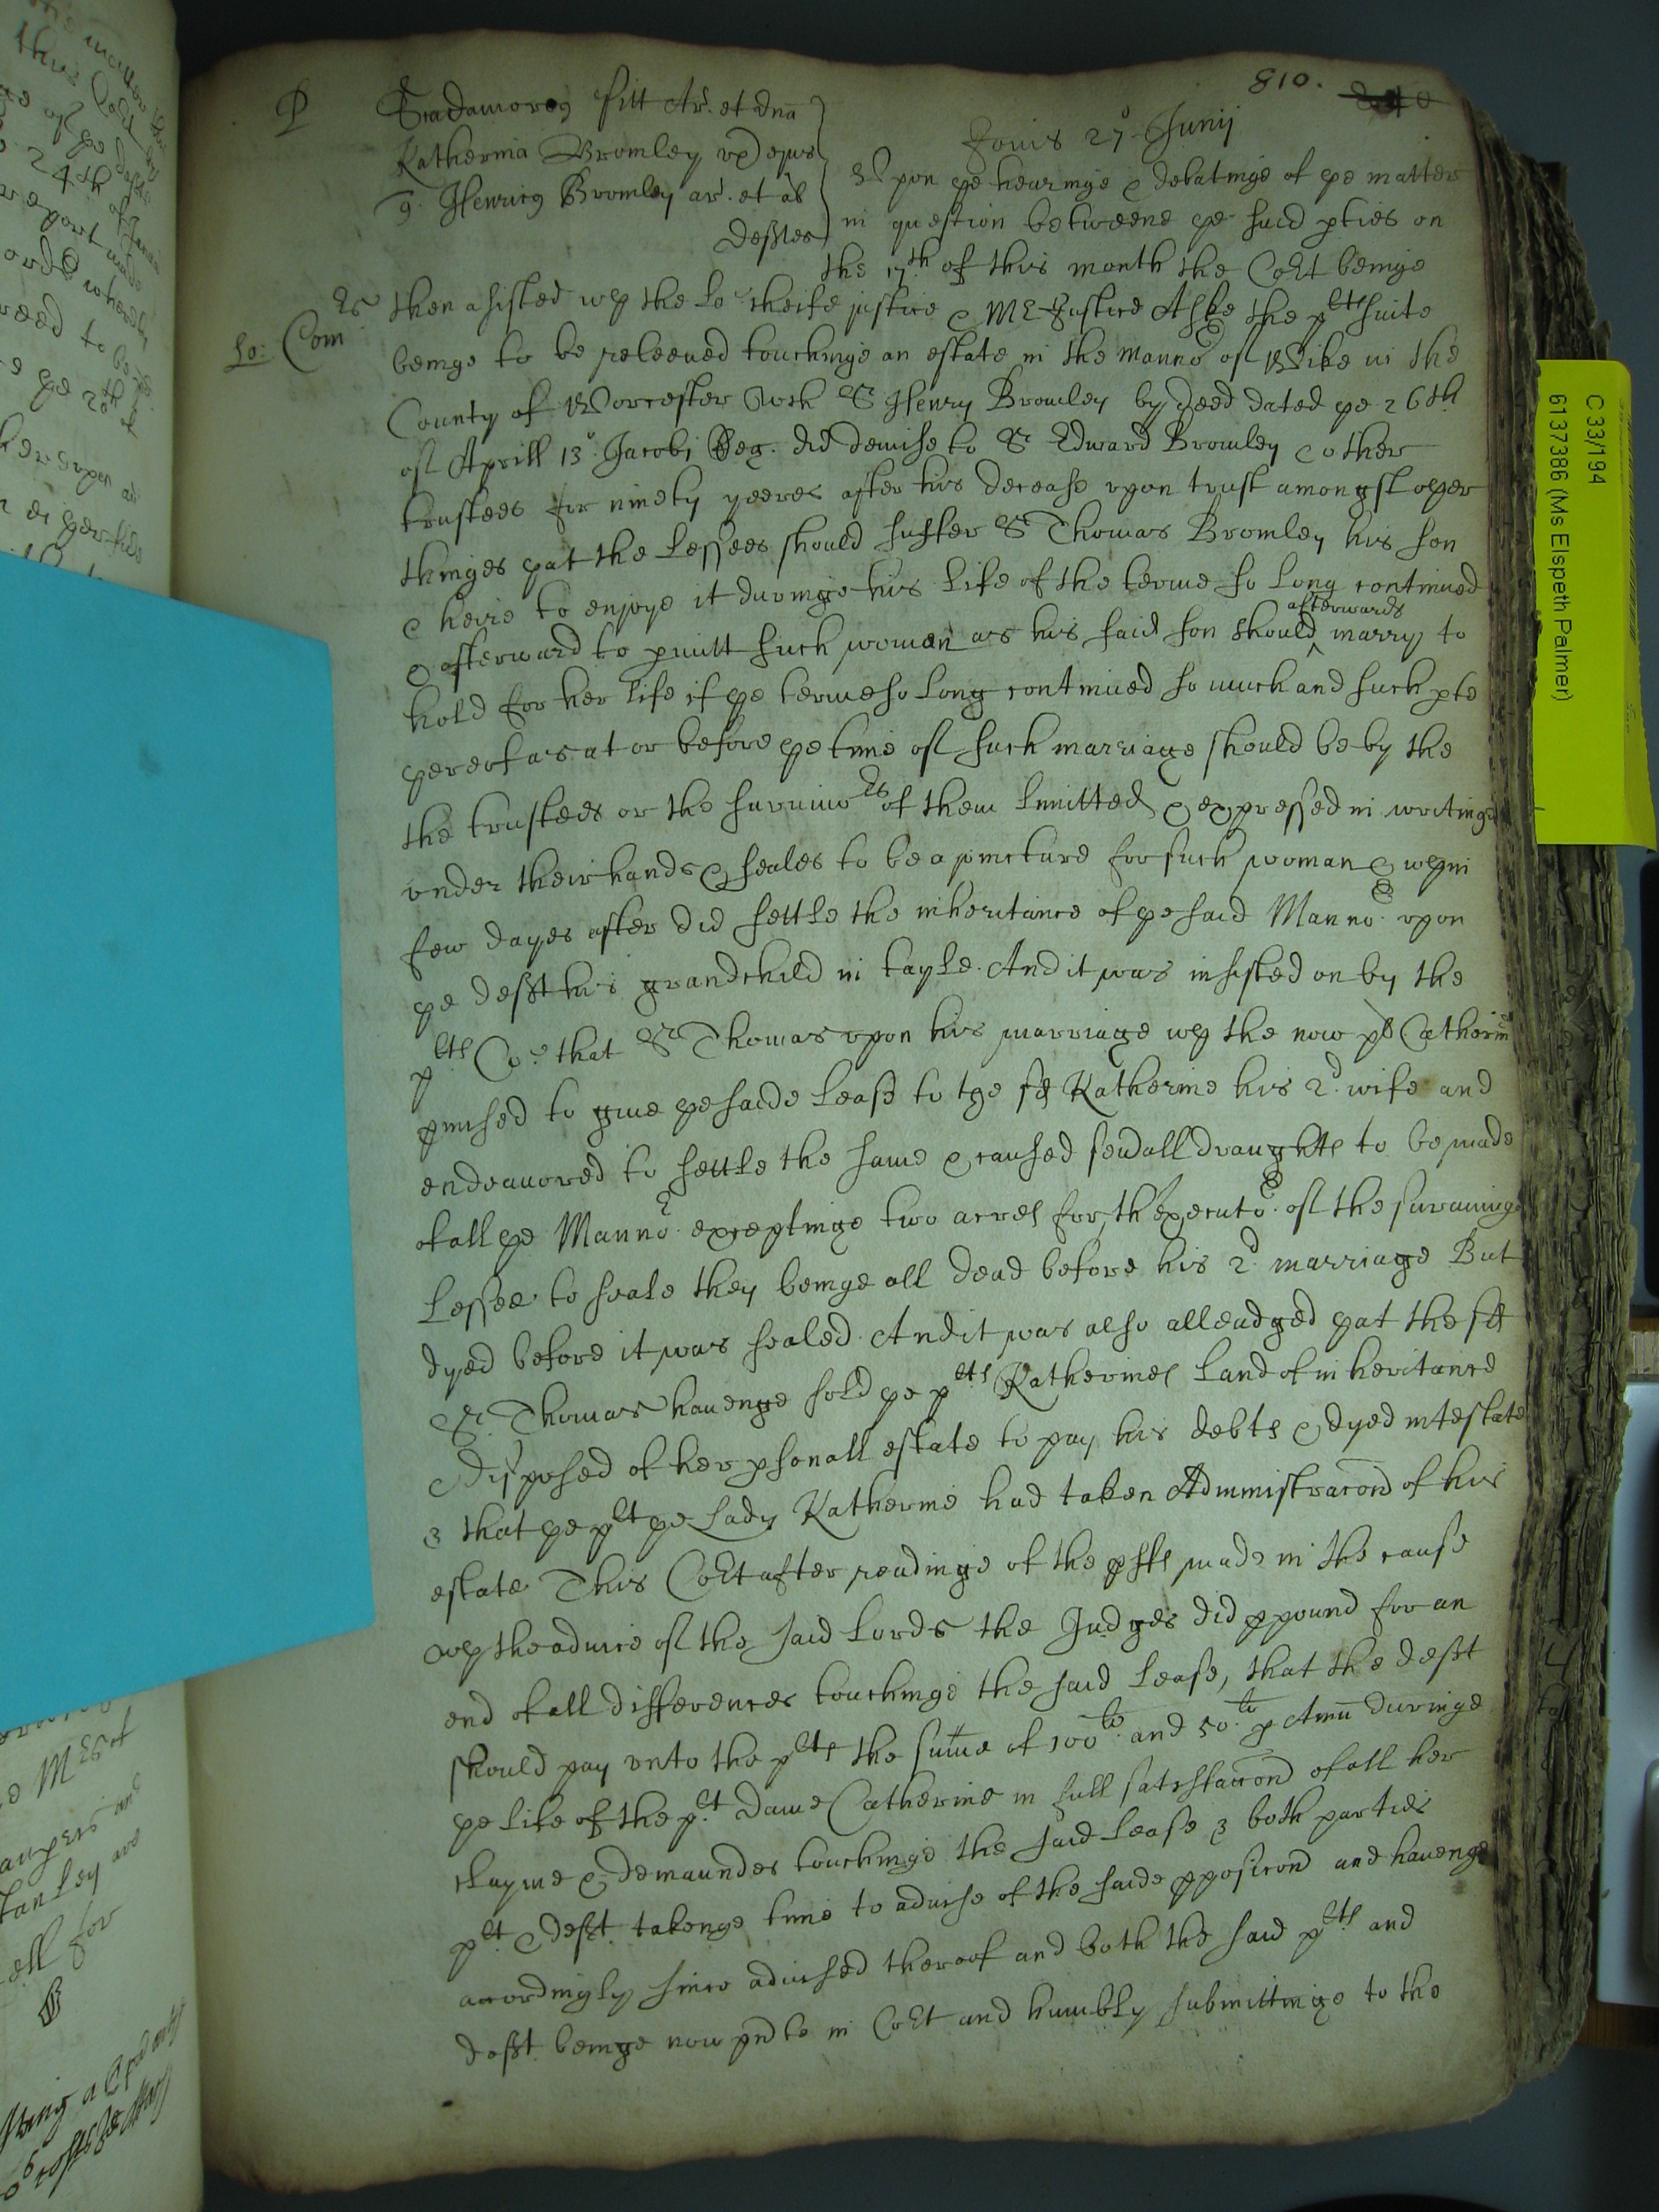 810.
P
Scudamorus Pitt Ar. et dna
Katherina Bromley vx eius
q. Henricus Bromley ar. et al
defftes
Jouis 27º Junij
Vpon ye hearinge & debatinge of ye matter
in question betweene ye said pties on
the 17th of this month the Cort beinge
Lo: Comrs
then assisted wth the Lo: cheife justice & Mr Justice Aske the plts suite
beinge to be releeued touchinge an estate in the Manno r of Wike in the
County of Worcester wch Sr Henry Bromley by deed dated ye 26th
of Aprill 13º Jacobi Reg. did demise to Sr Edward Bromley & other
trustees for ninety yeeres after his decease vpon trust amongst oyer
thinges yat the Lessees should suffer Sr Thomas Bromley his son
& heire to enjoye it duringe his life of the terme so long continued
& afterward to pmitt such woman as his said son should afterwards marry to
hold for her life if ye terme so long continued so much and such pte
yereof as at or before ye time of such marriage should be by the
the trustees or the suruiuors of them limitted & expressed in writinge
vnder their hands & seales to be a joincture for such woman & wthin
few dayes after did settle the inheritance of ye said Mannor vpon
ye defft his grandchild in tayle. And it was insisted on by the
plts Co: that Sr Thomas vpon his marriage wth the now plt Catherine
pmised to giue ye saide lease to the sd Katherine his 2d. wife and
endeauored to settle the same & caused seuall draughts to be made
of all ye Mannor exceptinge two acres for th'executor of the suruiuinge
Lessee to seale they beinge all dead before his 2d marriage But
dyed before it was sealed. And it was also alleadged yat the sd
Sr. Thomas hauenge sold ye plts Katherines land of inheritance
& disposed of her psonall estate to pay his debts & dyed intestate
& that ye plt ye Lady Katherine had taken Administracon of his
estate This Cort after readinge of the pffs made in the cause
wth the aduice of the said Lords the Judges did ppound for an
end of all differences touchinge the said lease, that the defft
should pay vnto the plts the sume of 100li. and 50.li p Annu duringe
ye life of the plt Dame Catherine in full satisfaccon of all her
clayme & demaundes touchinge the said lease & both parties
plt. & defft. takenge time to aduise of the saide pposicon and hauenge
accordingly since aduised thereof and both the said plts and
defft. beinge now pnte in Cort and humbly submittinge to the
C 33/194
6137386 (Ms Elspeth Palmer)